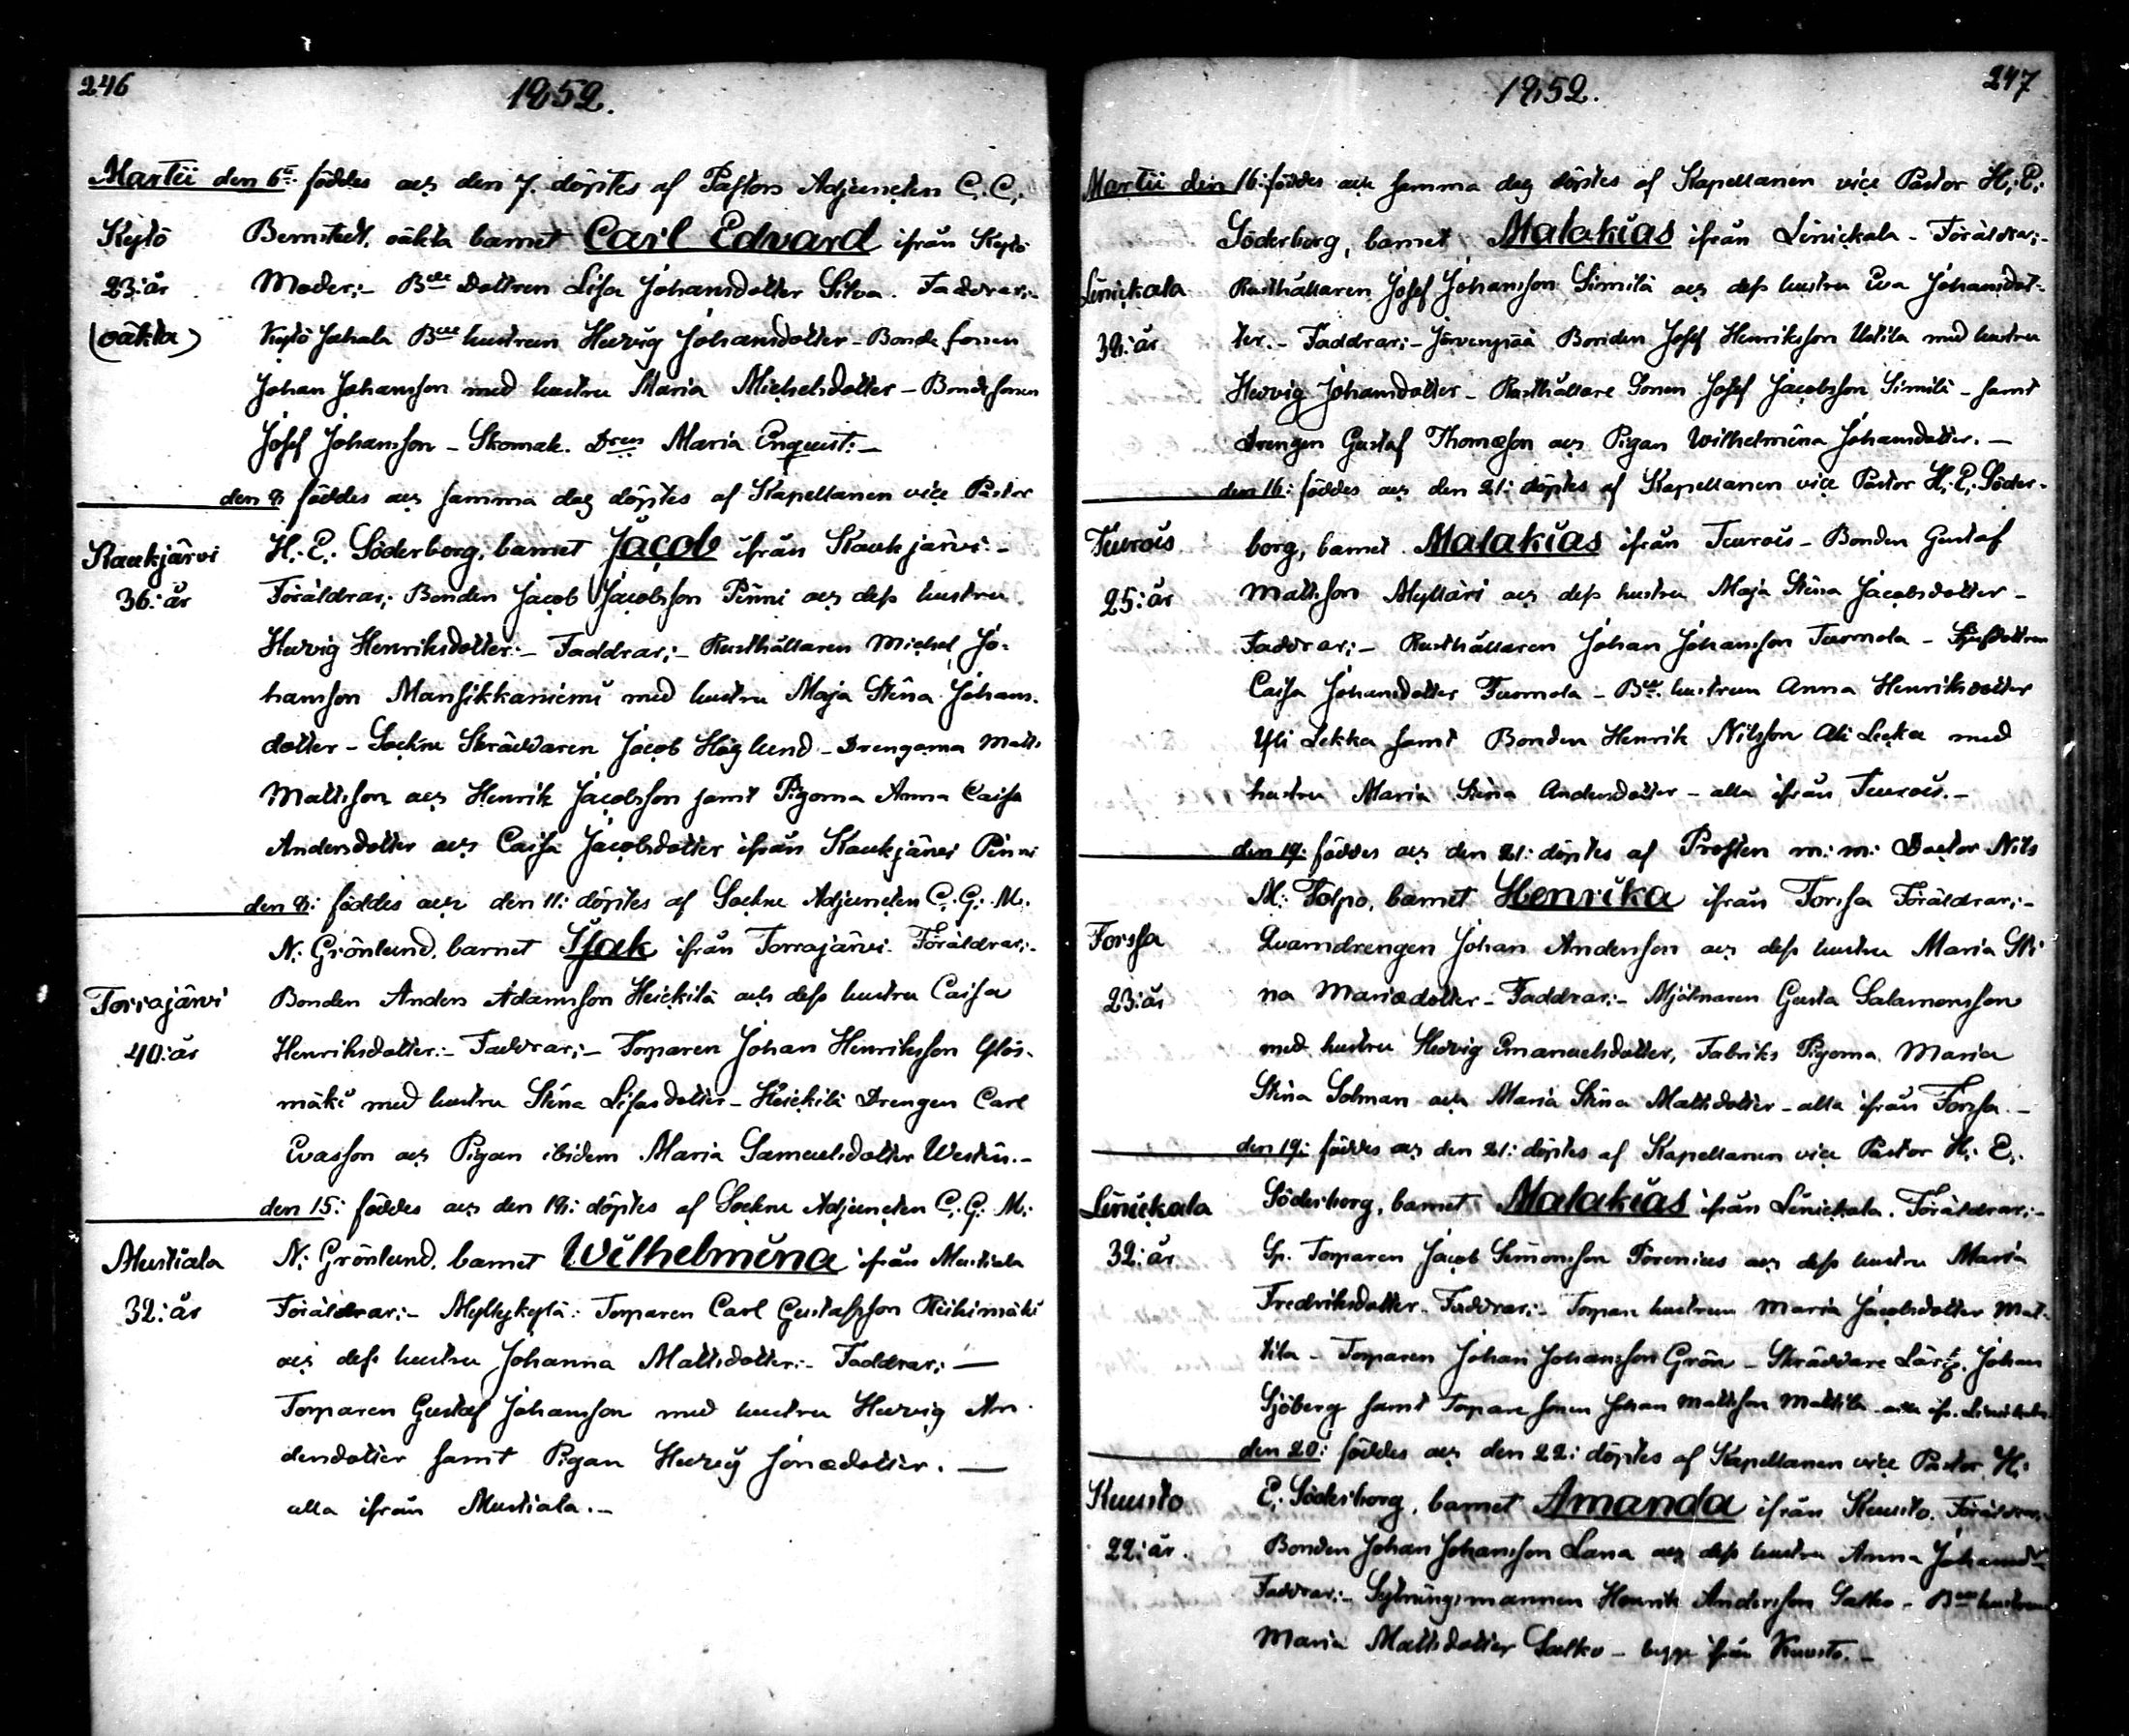 246
1852.
Martii den 6te föddes och den 7. döptes af Pastors Adjuncten C. C.
Kytö Bernstedt, oäkta barnet Carl Edvard ifrån Kytö
23: år Moder:- Bde Dottren Lisa Johansdotter Silva. Faddrar:-
(oäkta) Kytö Jahala Bde hustrun Hedvig Johansdotter - Bonde sonen
Johan Johansson med hustru Maria Michelsdotter - Bondesonen
Josef Johansson - Skomak. Dren Maria Enqvist:-
den 8 föddes och samma dag döptes af Kapellanen vice Pastor
Kaukjärvi H: E: Söderborg, barnet Jacob ifrån Kaukjärvi:-
36: år Föräldrar: Bonden Jacob Jacobsson Pinni och dess hustru
Hedvig Henriksdotter:- Faddrar:- Rusthållaren Michel Jo-
hansson Mansikkaniemi med hustru Maja Stina Johans-
dotter - Sockne Skräddaren Jacob Höglund - Drengarna Matts
Mattsson och Henrik Jacobsson samt Pigorna Anna Caisa
Andersdotter och Caisa Jacobsdotter ifrån Kaukjärvi Pinni
den 8: föddes och den 11: döptes af Sockne Adjuncten C. G. M.
N: Grönlund, barnet Isak ifrån Torrajärvi. Föräldrar:-
Torrajärvi Bonden Anders Adamsson Heickilä och dess hustru Caisa
40: år Henriksdotter:- Faddrar:- Torparen Johan Henriksson Ylös-
mäki med hustru Stina Lisasdotter - Heickilä Drengen Carl
Evasson och Pigan ibidem Maria Samuelsdotter Westin.-
den 15: föddes och den 18: döptes af Sockne Adjuncten C. G. M:
Mustiala N: Grönlund, barnet Wilhelmina ifrån Mustiala
32: år Föräldrar:- Myllykylä: Torparen Carl Gustafsson Riihimäki
och dess hustru Johanna Mattsdotter:- Faddrar:-
Torparen Gustaf Johansson med hustru Hedvig An-
dersdotter samt Pigan Hedvig Jonædotter.-
alla ifrån Mustiala.-
247
1852.
Martii den 16: föddes och samma dag döptes af Kapellanen vice Pastor H: E:
Söderborg, barnet Malakias ifrån Linickala - Föräldrar:-
Linickala Rusthållaren Josef Johansson Simila och dess hustru Eva Johansdot-
38: år ter.- Faddrar:- Järvenpää Bonden Josef Henriksson Uotila med hustru
Hedvig Johansdotter - Rusthållare Sonen Josef Jacobsson Simila - samt
Drengen Gustaf Thomæson och Pigan Wilhelmina Johansdotter.-
den 16: föddes och den 21: döptes af Kapellanen vice Pastor H: E: Söder-
Teurois borg, barnet Malakias ifrån Teurois - Bonden Gustaf
25: år Mattsson Myllari och dess hustru Maja Stina Jacobsdotter -
Faddrar:- Rusthållaren Johan Johansson Tuomola -
Caisa Johansdotter Tuomola - Bde. hustrun Anna Henriksdotter
Yli Lekka samt Bonden Henrik Nilsson Ali Lecka med
hustru Maria Stina Andersdotter - alla ifrån Teurois.-
den 19: föddes och den 21: döptes af Prosten m: m: Doctor Nils
M: Tolpo, barnet Henrika ifrån Forssa Föräldrar:-
Forssa Qvarndrengen Johan Andersson och dess hustru Maria Sti-
23: år na Mariædotter - Faddrar:- Mjölnaren Gusta Salamonsson
med hustru Hedvig Emanuelsdotter, Fabriks Pigorna Maria
Stina Solman och Maria Stina Mattsdotter - alla ifrån Forssa.-
den 19: föddes och den 21: döptes af Kapellanen vice Pastor H: E:
Linickala Söderborg, barnet Malakias ifrån Linickala. Föräldrar:-
32: år Sp. Torparen Jacob Simonsson Forenius och dess hustru Maria
Fredriksdotter. Faddrar:- Torpare hustrun Maria Jacobsdotter Mat-
tila - Torparen Johan Johansson Grön - Skräddare Lärl. Johan
Sjöberg samt Torpare sonen Johan Mattsson Mattila alla ifr. Linickala
den 20: föddes och den 22: döptes af Kapellanen vice Pastor H:
Kuusto E: Söderborg, barnet Amanda ifrån Kuusto. Föräldrar:-
22: år. Bonden Johan Johansson Lana och dess hustru Anna Johansdr
Faddrar:- Sytningsmannen Henrik Andersson Salko - Bde hustrun
Maria Mattsdotter Salko - begge ifrån Kuusto.-